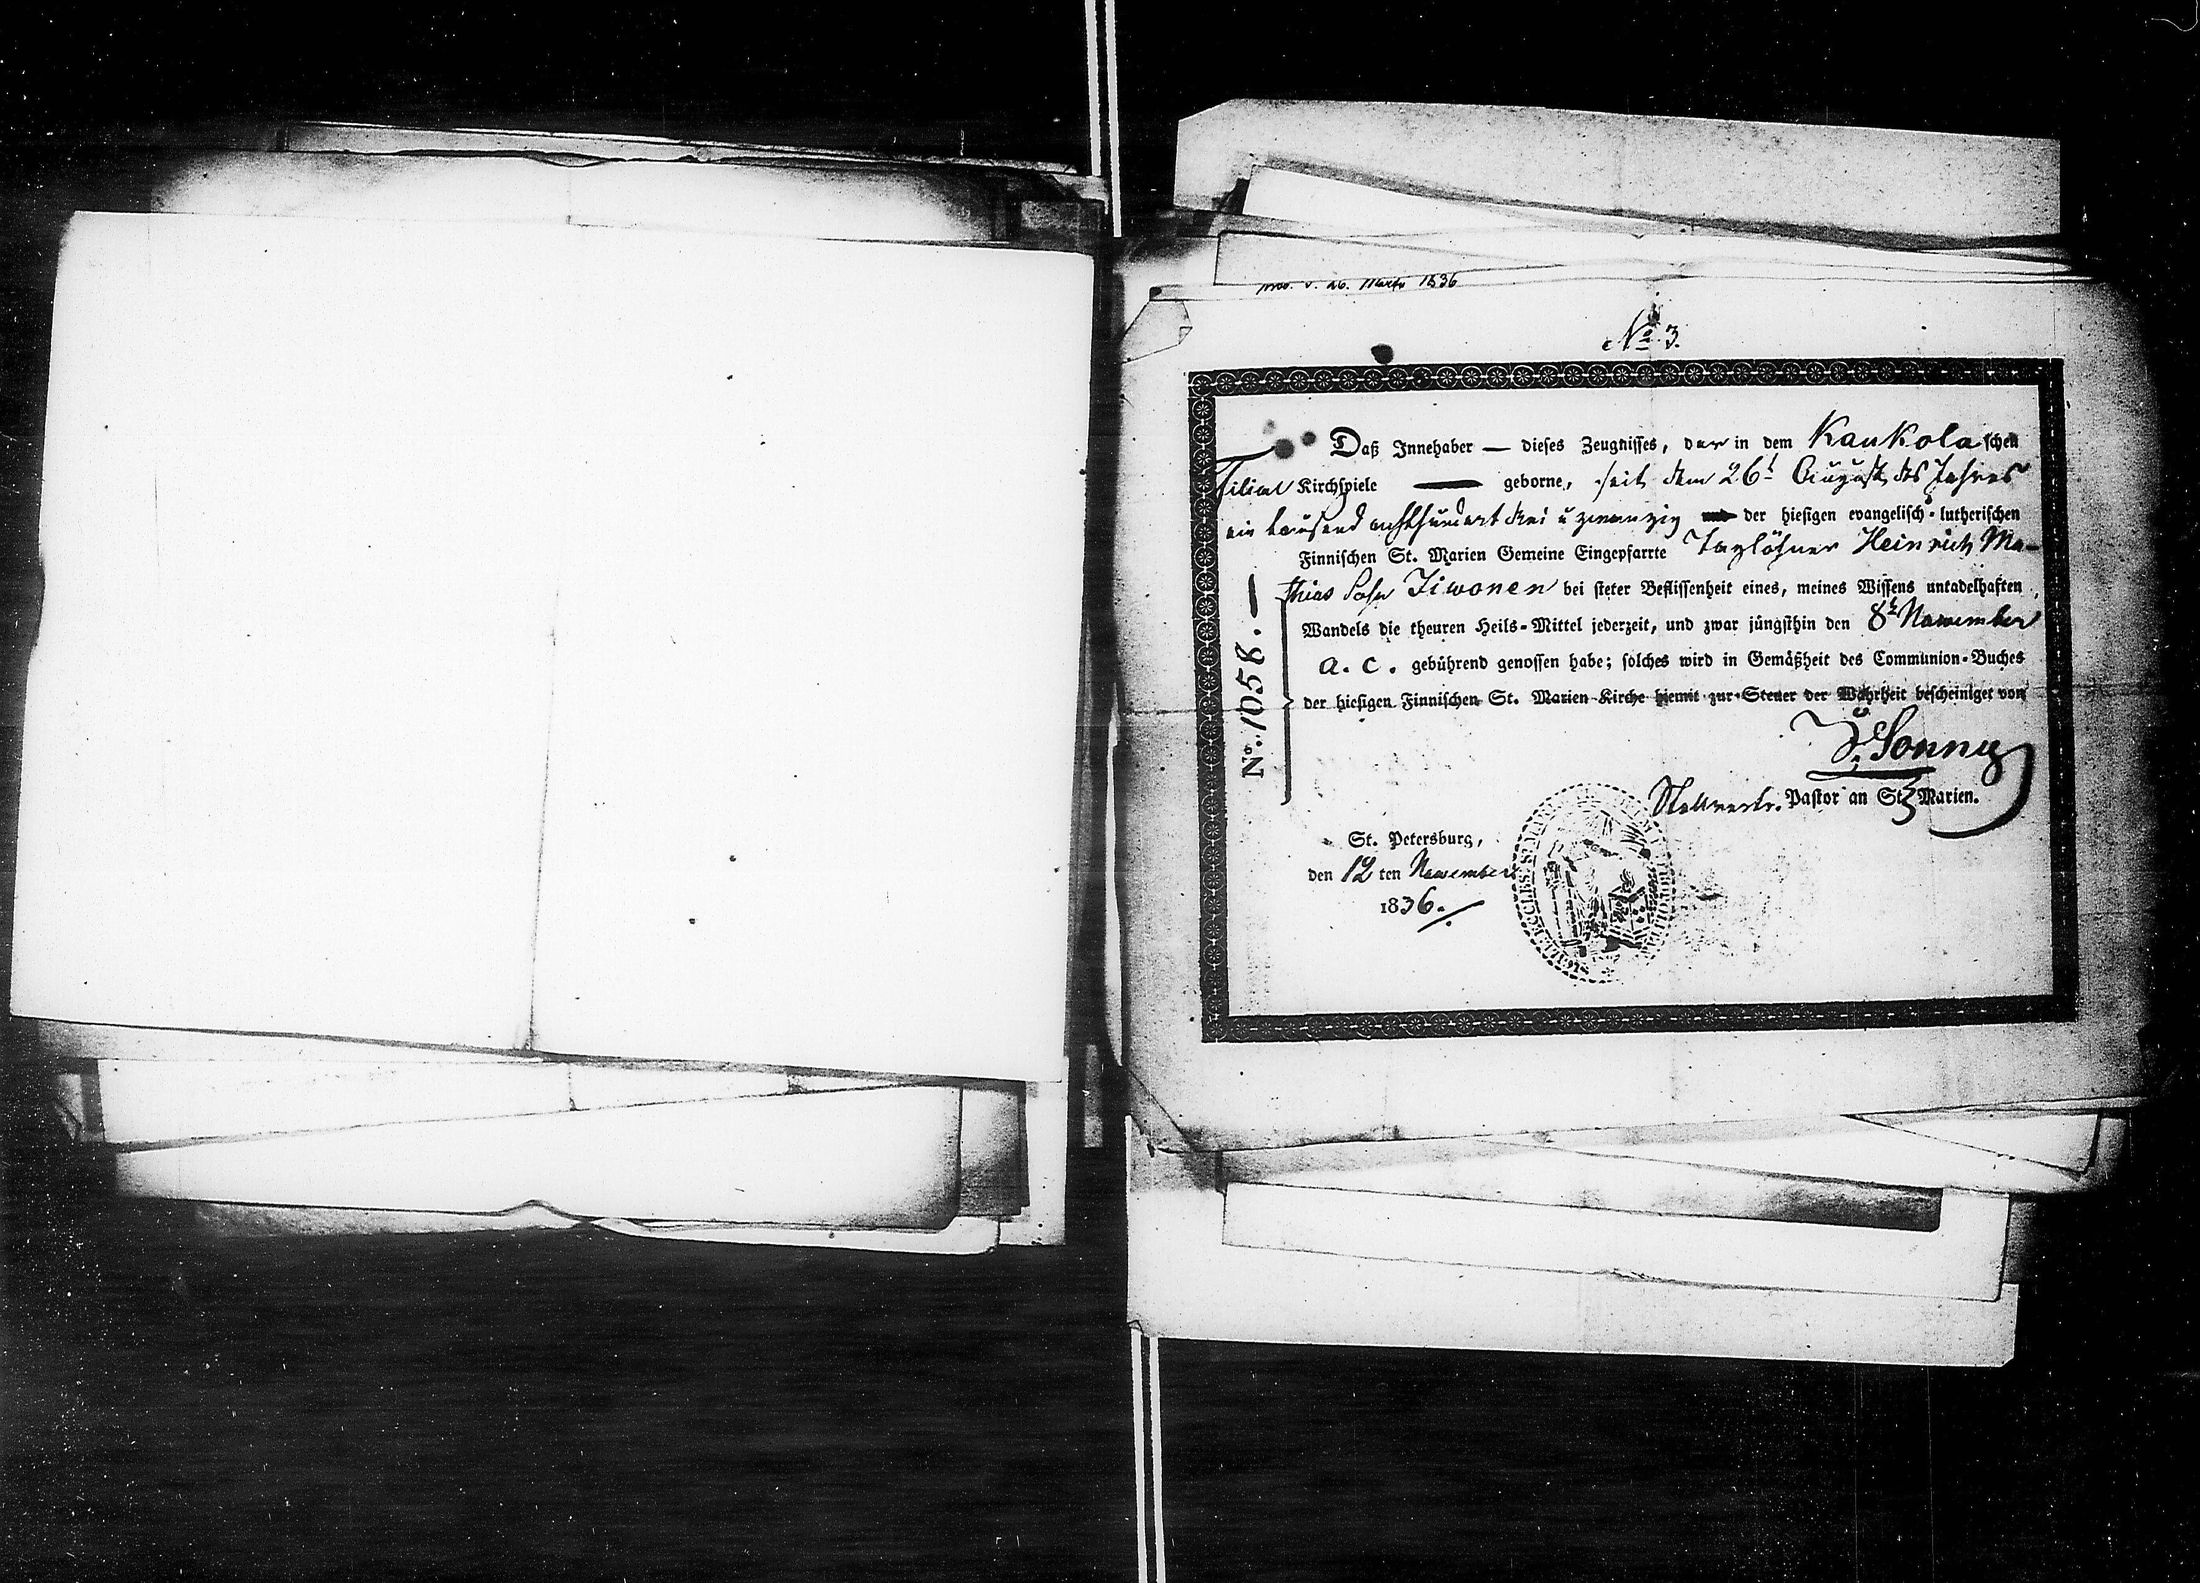 v. 26. Martz 1836
No. 3.
Daß Innehaber — dieses Zeugnisses, der in dem Kaukolaschen
Filial Kirchspiele — geborne, seit dem 26t August des Jahres
ein tausend achthundert drei u zwanzig der hiesigen evangelisch-lutherischen
Finnischen St. Marien Gemeine Eingepfarrte Taglöhner Heinrich Ma-
thias Sohn Iiwonen bei steter Beflissenheit eines, meines Wissens untadelhaften
Wandels die theuren Heils-Mittel jederzeit, und zwar jüngsthin den 8t November
a. c. gebührend genossen habe; solches wird in Gemäßheit des Communion-Buches
der hiesigen Finnischen St. Marien-Kirche hiemit zur Steuer der Wahrheit bescheiniget von
No. 1058. —
Sonny
Stellvertr. Pastor an St. Marien.
St. Petersburg,
den 12 ten November
1836.